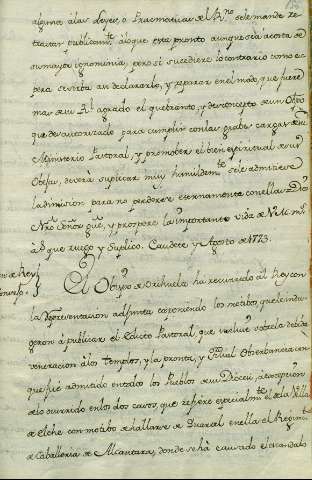 alguna á las Leyes, o Pracmaticas del R.no se le mande re-
tractar publicam.te á lo que está pronto aunque sea acosta de
su mayor ignominia, pero si sucediere lo contrario como es-
pera se sirba assi declararlo, y reparar en el modo que fuere
mas de su R.l agrado el quebranto, y desconcepto de un Obpo
que desautorizado para cumplir con las grabes cargas de su
Ministerio Pastoral, y promober el bien espiritual de sus
Obejas, deverá suplicar muy humildem.te se le admitiese
la dimision para no perderse eternamente con ellas. Dios
Nro Señor gue, y prospere la importante vida de V. M. m.s
a.s que ruego y Suplico. Caudete, y Agosto de 1773.
de Rey
El Obpo de Orihuela ha recurrido al Rey con
la Representacion adjunta exponiendo los motibos que le indu-
geron á publicar el Edicto Pastoral que incluie sobre la debida
veneracion á los templos, y la pronta, y Gral Observancia con
que fue admitido en todos los Pueblos de su Diocesi, á excepcion
de lo ocurrido en los dos casos, que refiere especialm.te el de la Villa
de Elche con motibo de hallarse de Quartel en ella el Regim.to
de Caballeria de Alcantara, donde se há causado el escandalo